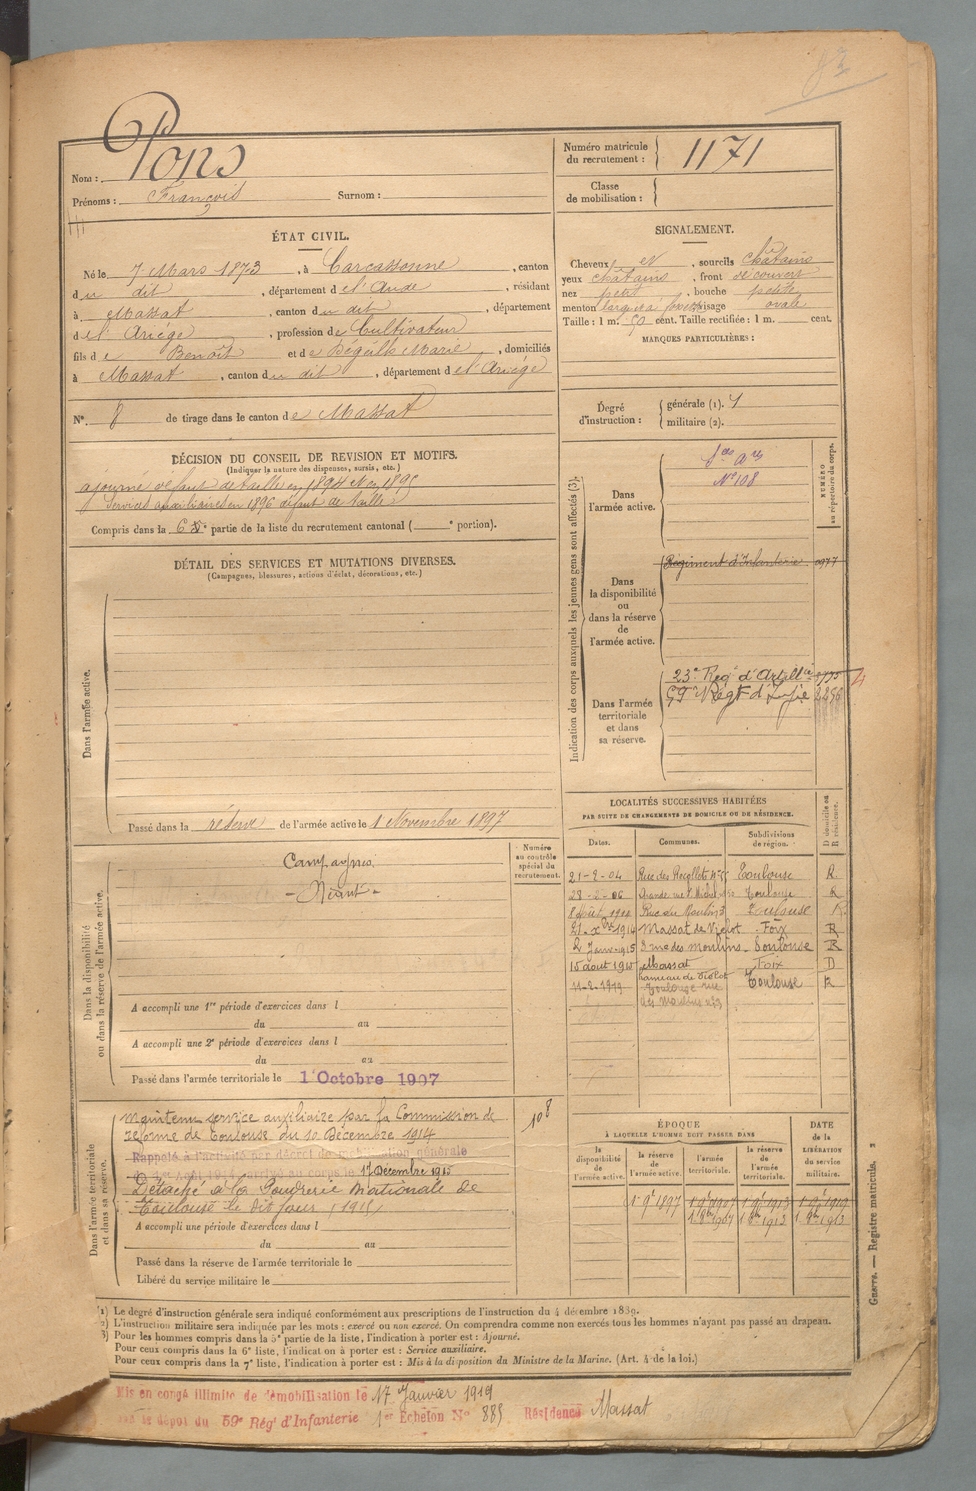 Pons
Nom :
Prénoms : François Surnom :
Numéro matricule du recrutement : 1171
Classe de mobilisation :
ÉTAT CIVIL.
Né le 7 Mars 1873, à Carcassonne, canton
du dit, département de l'Aude, résidant
à Massat, canton du dit, département
de l'Ariège, profession de Cultivateur
fils de Benoit et de Dégeilh Marie, domiciliés
à Massat, canton du dit, département de l'Ariège
N° 8 de tirage dans le canton de Massat
SIGNALEMENT.
Cheveux et, sourcils châtains
yeux châtains, front découvert
nez petit, bouche petite
menton large, visage ovale
Taille : 1 m. 50 cent. Taille rectifiée : 1 m. cent.
MARQUES PARTICULIÈRES :
Degré d'instruction :
générale (1). 1
militaire (2).
DÉCISION DU CONSEIL DE REVISION ET MOTIFS.
(Indiquer la nature des dispenses, sursis, etc.)
ajourné défaut de taille en 1894 et en 1895
Services auxiliaires en 1896 défaut de taille
Compris dans la 6e partie de la liste du recrutement cantonal ( e portion).
DÉTAIL DES SERVICES ET MUTATIONS DIVERSES.
(Campagnes, blessures, actions d'éclat, décorations, etc.)
Dans l'armée active.
Passé dans la réserve de l'armée active le 1 Novembre 1897
Indication des corps auxquels les jeunes gens sont affectés (3).
NUMÉRO au répertoire du corps.
Dans l'armée active.
N° 108
Dans la disponibilité ou dans la réserve de l'armée active.
Régiment d'Infanterie 0977
Dans l'armée territoriale et dans sa réserve.
23e Reg d'Artillie
59e Régt d'Infie
LOCALITÉS SUCCESSIVES HABITÉES
PAR SUITE DE CHANGEMENTS DE DOMICILE OU DE RÉSIDENCE.
Dates. Communes. Subdivisions de région. D domicile ou R résidence.
21-2-04 Rue des Récollets Toulouse R
28-2-06 Grande rue St Michel Toulouse R
8 Août 1912 Rue du Moulins 3 Toulouse R
21-Xbre 1914 Massat de Vielot Foix R
2 Janv-1915 3 rue des moulins Toulouse R
15 aout 1915 Massat Foix D
hameau de Violot
11-2-1919 Toulouse rue Toulouse R
des Moulins n°3
Dans la disponibilité ou dans la réserve de l'armée active.
Numéro au contrôle spécial du recrutement.
Campagnes.
- Néant -
A accompli une 1re période d'exercices dans l
du au
A accompli une 2e période d'exercices dans l
du au
Passé dans l'armée territoriale le 1 Octobre 1907
Dans l'armée territoriale et dans sa réserve.
108
Maintenu service auxiliaire par la Commission de
réforme de Toulouse du 10 Décembre 1914
Rappelé à l'activité par décret de mobilisation générale
du 1er Août 1914, arrivé au corps le 17 Décembre 1915
Détaché à la Poudrerie Nationale de
Toulouse le dit jour (1915)
A accompli une période d'exercices dans l
du au
Passé dans la réserve de l'armée territoriale le
Libéré du service militaire le
ÉPOQUE
À LAQUELLE L'HOMME DOIT PASSER DANS
la disponibilité de l'armée active. la réserve de l'armée active. l'armée territoriale. la réserve de l'armée territoriale.
DATE de la LIBÉRATION du service militaire.
1 9e 1897 1 9e 1907 1 9e 1913 1 9e 1919
1 8e 1907 1 8e 1913 1 8e 1913
Guerre. — Registre matricule. 2
1) Le degré d'instruction générale sera indiqué conformément aux prescriptions de l'instruction du 4 décembre 1889.
2) L'instruction militaire sera indiquée par les mots : exercé ou non exercé. On comprendra comme non exercés tous les hommes n'ayant pas passé au drapeau.
3) Pour les hommes compris dans la 5e partie de la liste, l'indication à porter est : Ajourné.
Pour ceux compris dans la 6e liste, l'indication à porter est : Service auxiliaire.
Pour ceux compris dans la 7e liste, l'indication à porter est : Mis à la disposition du Ministre de la Marine. (Art. 4 de la loi.)
Mis en congé illimité de démobilisation le 17 Janvier 1919
le dépôt du 59e Rég' d'Infanterie 1er Echelon N° 885 Résidence Massat